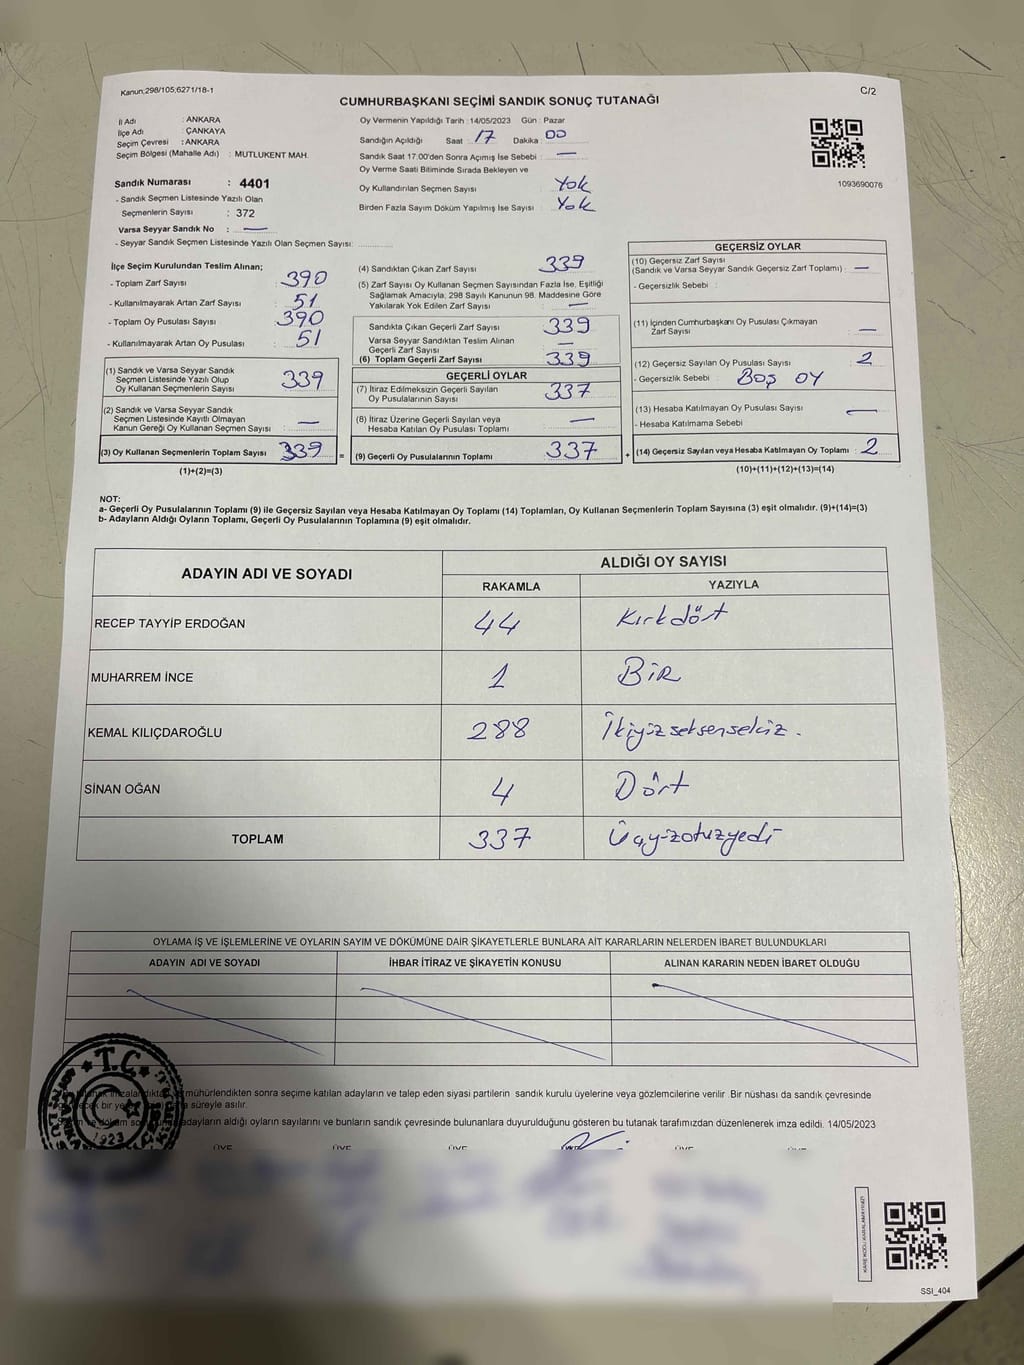 Kanun:298/105;6271/18-1
C/2
CUMHURBAŞKANI SEÇİMİ SANDIK SONUÇ TUTANAĞI
İl Adı : ANKARA
İlçe Adı : ÇANKAYA
Seçim Çevresi : ANKARA
Seçim Bölgesi (Mahalle Adı) : MUTLUKENT MAH.
Sandık Numarası : 4401
- Sandık Seçmen Listesinde Yazılı Olan
Seçmenlerin Sayısı : 372
Varsa Seyyar Sandık No : —
- Seyyar Sandık Seçmen Listesinde Yazılı Olan Seçmen Sayısı: ............
Oy Vermenin Yapıldığı Tarih : 14/05/2023 Gün : Pazar
Sandığın Açıldığı Saat 17 Dakika : 00
Sandık Saat 17:00'den Sonra Açımış İse Sebebi : —
Oy Verme Saati Bitiminde Sırada Bekleyen ve
Oy Kullandırılan Seçmen Sayısı : Yok
Birden Fazla Sayım Döküm Yapılmış İse Sayısı : Yok
1093690076
İlçe Seçim Kurulundan Teslim Alınan;
- Toplam Zarf Sayısı : 390
- Kullanılmayarak Artan Zarf Sayısı : 51
- Toplam Oy Pusulası Sayısı : 390
- Kullanılmayarak Artan Oy Pusulası : 51
(1) Sandık ve Varsa Seyyar Sandık
Seçmen Listesinde Yazılı Olup
Oy Kullanan Seçmenlerin Sayısı : 339
(2) Sandık ve Varsa Seyyar Sandık
Seçmen Listesinde Kayıtlı Olmayan
Kanun Gereği Oy Kullanan Seçmen Sayısı : —
(3) Oy Kullanan Seçmenlerin Toplam Sayısı : 339
(1)+(2)=(3)
(4) Sandıktan Çıkan Zarf Sayısı : 339
(5) Zarf Sayısı Oy Kullanan Seçmen Sayısından Fazla İse, Eşitliği
Sağlamak Amacıyla; 298 Sayılı Kanunun 98. Maddesine Göre
Yakılarak Yok Edilen Zarf Sayısı : —
Sandıkta Çıkan Geçerli Zarf Sayısı : 339
Varsa Seyyar Sandıktan Teslim Alınan
Geçerli Zarf Sayısı : —
(6) Toplam Geçerli Zarf Sayısı : 339
GEÇERLİ OYLAR
(7) İtiraz Edilmeksizin Geçerli Sayılan
Oy Pusulalarının Sayısı : 337
(8) İtiraz Üzerine Geçerli Sayılan veya
Hesaba Katılan Oy Pusulası Toplamı : —
= (9) Geçerli Oy Pusulalarının Toplamı : 337
GEÇERSİZ OYLAR
(10) Geçersiz Zarf Sayısı
(Sandık ve Varsa Seyyar Sandık Geçersiz Zarf Toplamı) : —
- Geçersizlik Sebebi :
(11) İçinden Cumhurbaşkanı Oy Pusulası Çıkmayan
Zarf Sayısı : —
(12) Geçersiz Sayılan Oy Pusulası Sayısı : 2
- Geçersizlik Sebebi : BOŞ OY
(13) Hesaba Katılmayan Oy Pusulası Sayısı : —
- Hesaba Katılmama Sebebi
+ (14) Geçersiz Sayılan veya Hesaba Katılmayan Oy Toplamı : 2
(10)+(11)+(12)+(13)=(14)
NOT:
a- Geçerli Oy Pusulalarının Toplamı (9) ile Geçersiz Sayılan veya Hesaba Katılmayan Oy Toplamı (14) Toplamları, Oy Kullanan Seçmenlerin Toplam Sayısına (3) eşit olmalıdır. (9)+(14)=(3)
b- Adayların Aldığı Oyların Toplamı, Geçerli Oy Pusulalarının Toplamına (9) eşit olmalıdır.
ADAYIN ADI VE SOYADI
ALDIĞI OY SAYISI
RAKAMLA YAZIYLA
RECEP TAYYİP ERDOĞAN 44 Kırkdört
MUHARREM İNCE 1 BİR
KEMAL KILIÇDAROĞLU 288 İkiyüzseksensekiz.
SİNAN OĞAN 4 Dört
TOPLAM 337 Üçyüzotuzyedi
OYLAMA İŞ VE İŞLEMLERİNE VE OYLARIN SAYIM VE DÖKÜMÜNE DAİR ŞİKAYETLERLE BUNLARA AİT KARARLARIN NELERDEN İBARET BULUNDUKLARI
ADAYIN ADI VE SOYADI İHBAR İTİRAZ VE ŞİKAYETİN KONUSU ALINAN KARARIN NEDEN İBARET OLDUĞU
T.C.
1923
mühürlendikten sonra seçime katılan adayların ve talep eden siyasi partilerin sandık kurulu üyelerine veya gözlemcilerine verilir. Bir nüshası da sandık çevresinde
bir süreyle asılır.
adayların aldığı oyların sayılarını ve bunların sandık çevresinde bulunanlara duyurulduğunu gösteren bu tutanak tarafımızdan düzenlenerek imza edildi. 14/05/2023
ÜYE ÜYE ÜYE ÜYE ÜYE
KARE KODU KARALAMAYINIZ!
SSI_404